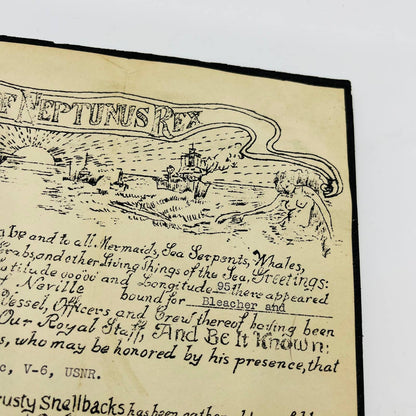 OF NEPTUNUS REX
be and to all Mermaids, Sea Serpents, Whales,
Crabs, and other Living Things of the Sea, Greetings:
titude 00000 and Longitude 95 there appeared
Neville bound for Bleacher and
Vessel, Officers and Crew thereof having been
Our Royal Staff, And Be It Known:
s, who may be honored by his presence, that
c, V-6, USNR.
rusty Shellbacks has been gathered